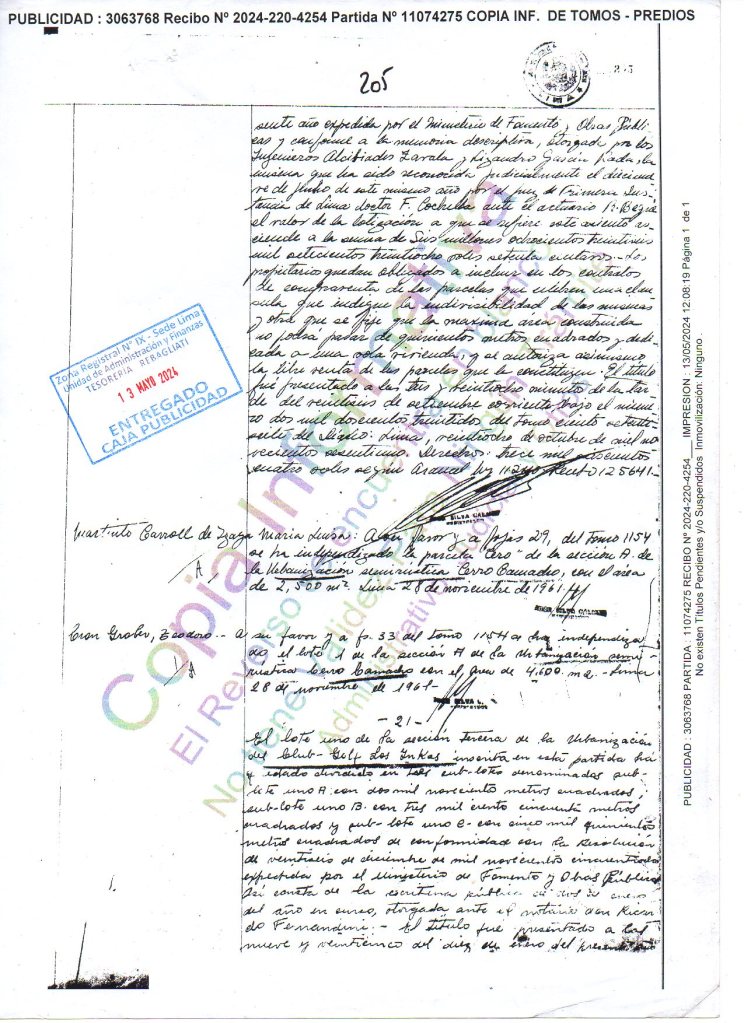 PUBLICIDAD : 3063768 Recibo Nº 2024-220-4254 Partida Nº 11074275 COPIA INF. DE TOMOS - PREDIOS
205
sente año expedida por el Ministerio de Fomento y Obras Públi-
cas y conforme a la memoria descriptiva, otorgada por los
Ingenieros Alcibiades Zavala y Lizandro García Rada, la
misma que ha sido reconocida judicialmente el diecinue
ve de Junio de este mismo año por el Juez de Primera Ins-
tancia de Lima doctor F. ante el actuario
el valor de la lotización a que se refiere este asiento as-
ciende a la suma de Seis millones ochocientos treintiseis
mil setecientos treintiocho soles setenta centavos.- Los
propietarios quedan obligados a incluir en los contratos
de compraventa de las parcelas que celebren una cláu-
sula que indique la indivisibilidad de las mismas
y otra que se fije que la maxima area construida
no podrá pasar de quinientos metros cuadrados y dedi-
cada a una sola vivienda; y se autoriza asimismo
la libre venta de las parcelas que la constituyen. El título
fué presentado a las tres y veintiocho minutos de la tar-
de del veintiseis de setiembre corriente, bajo el núme-
ro dos mil doscientos treintidos del tomo ciento setenti-
siete del diario. Lima, veintiocho de octubre de mil no-
vecientos sesentiuno. Derechos: trece mil doscientos
cuatro soles según Arancel
Zona Registral Nº IX - Sede Lima
Unidad de Administración y Finanzas
TESORERIA REBAGLIATI
13 MAYO 2024
ENTREGADO
CAJA PUBLICIDAD
Carroll de Izaga Maria Luisa: A su favor y a fojas 29, del tomo 1154
se ha independizado la parcela "Cero" de la sección A. de
A,
la Urbanización semirustica Cerro Camacho, con el área
de 2,500 m². Lima 28 de noviembre de 1961.
Gruber, Teodoro.- a su favor y a fs. 33 del tomo 1154 se ha independiza
do el lote 1 de la sección A de la Urbanización semi-
1A
rustica Cerro Camacho con el área de 4,600 m2. Lima
28 de noviembre de 1961-
- 21 -
El lote uno de la sección tercera de la Urbanización
del Club-Golf Los Inkas inscrita en esta partida ha
estado dividido en tres sub-lotes denominados sub-
lote uno A: con dos mil novecientos metros cuadrados;
sub-lote uno B: con tres mil ciento cincuenta metros
cuadrados y sub-lote uno C- con cinco mil quinientos
metros cuadrados de conformidad con la Resolución
de veintiseis de diciembre de mil novecientos
expedida por el Ministerio de Fomento y Obras Públicas
Así consta de la escritura pública de dos de enero
del año en curso, otorgada ante el notario don Ricar
do Fernandini.- El título fue presentado a las
nueve y veinticinco del diez de enero del presente año
Copia Informativa
El Reverso se encuentra en blanco
No tiene Validez Para Ningún Trámite
PUBLICIDAD : 3063768 PARTIDA : 11074275 RECIBO Nº 2024-220-4254 IMPRESIÓN : 13/05/2024 12:08:19 Página 1 de 1
No existen Títulos Pendientes y/o Suspendidos Inmovilización: Ninguno .